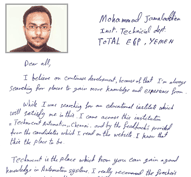 Mohammad Jamaluddin
Inst. Technical dept.
TOTAL E&P, YEMEN
Dear all,
I believe on continues development, because of that I'm always
searching for places to gain more knowledge and experience from.
While I was searching for an educational institute which
will satisfy me in this, I came across this institution
Technical institution, Chennai, and by the feedbacks provided
from the candidates which I read in the website I knew that
this the place to be.
is the place which from you can gain a good
knowledge in Automation system, I really recommend the